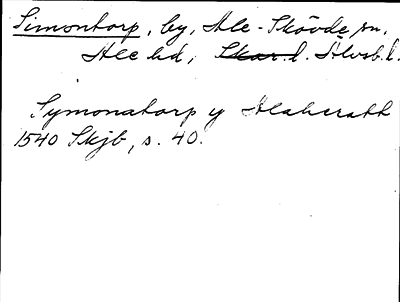 Simontorp, by, Ale-Skövde sn,
Ale hd, Skar.l. Älvsb.l.
Symonatorp y Alaherath
1540 Skjb, s. 40.